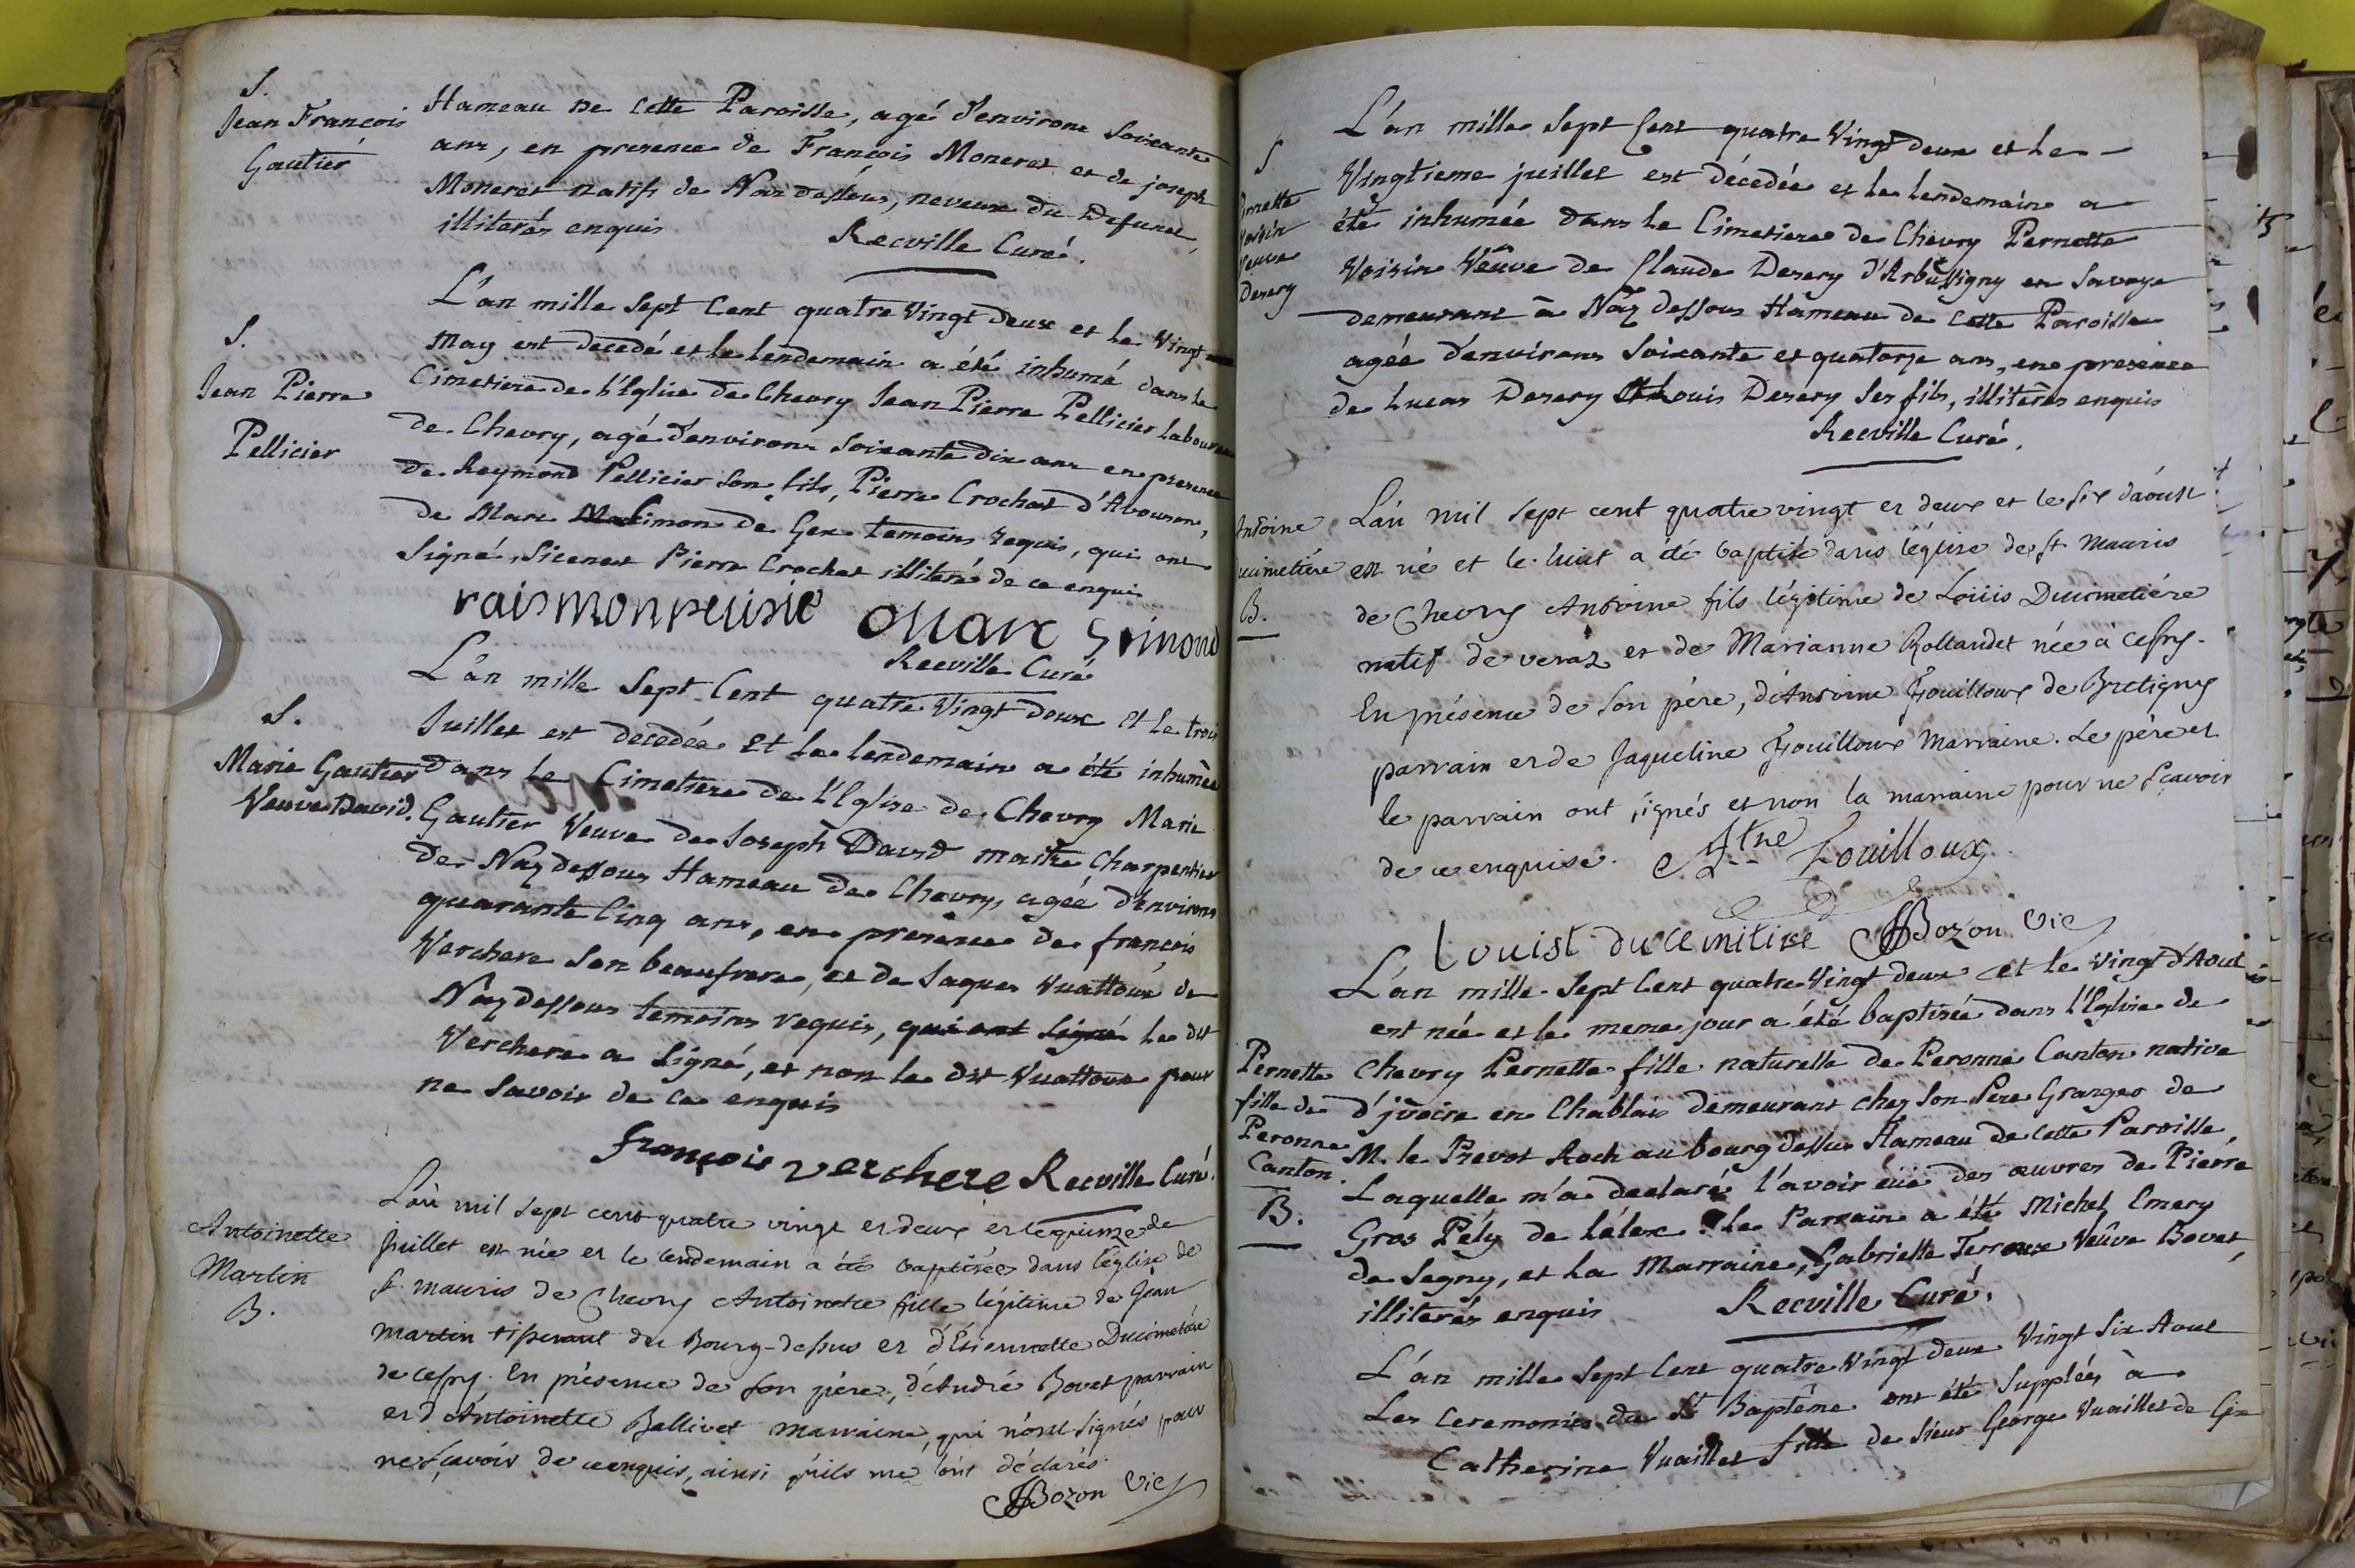 S.
Jean François
Gautier
Hameau de cette Paroisse, agé d'environ Soixante
ans, en presence de François Moneret et de joseph
Moneret natifs de Naz dessous, neveux du Defunct,
illiterés enquis
Recville Curé.
S.
Jean Pierre
Pellicier
L'an mille Sept Cent quatre Vingt deux et le Vingt
May est decedé et le lendemain a été inhumé dans le
Cimetiere de l'Eglise de Chevry Jean Pierre Pellicier Laboureur
de Chevry, agé d'environ Soixante dix ans en presence
de Reymond Pellicier Son fils, Pierre Crochat d'Avouson,
de Marc Simon de Gex temoins requis, qui ont
Signé, Sicenest Pierre Crochat illiteré de ce enquis
raismonpelisie Marc Simond
Recville Curé
S.
Marie Gautier
Veuve David.
L'an mille Sept Cent quatre Vingt Deux et le trois
Juillet est decedée et le lendemain a été inhumée
dans le Cimetiere de l'Eglise de Chevry Marie
Gautier Veuve de Joseph David maitre Charpentier
de Naz dessous Hameau de Chevry, agée d'environ
quarante Cinq ans, en presence de françois
Verchere Son beaufrere, et de Jaques Vuattoux de
Naz dessous temoins requis, qui ont Signé le dit
Verchere a Signé, et non le dit Vuattoux pour
ne Savoir de ce enquis
françois verchere Recville Curé.
Antoinette
Martin
B.
L'an mil sept cent quatre vingt et deux et le quinze de
Juillet est née et le lendemain a été baptisée dans l'église de
st. mauris de Chevry Antoinette fille légitime de Jean
Martin tisserant du Bourg-dessus et d'Etiennette Ducimetiére
de cessy. En présence de son pére, d'André Bovet parrain
et d'Antoinette Ballivet marraine, qui n'ont signés pour
ne sçavoir de ce enquis, ainsi qu'ils me l'ont déclarés.
Bozon Vic
S
Voisin
Veuve
Desery
L'an mille Sept Cent quatre Vingt Deux et le
Vingtieme juillet est décedée et le lendemain a
été inhumée dans le Cimetiere de Chevry Pernette
Voisin Veûve de Claude Desery d'Arbusigny en Savoye
demeurant à Naz dessous Hameau de Cette Paroisse
agée d'environ Soixante et quatorze ans, en presence
de Lucas Desery et Louis Desery Ses fils, illiterés enquis
Recville Curé.
Antoine
B.
L'an mil sept cent quatre vingt et deux et le six d'aoust
est né et le huit a été baptisé dans l'église de st mauris
de Chevry Antoine fils légitime de Loüis Ducimetiére
natif de veraz et de Marianne Rollandet née à Cessy.
En présence de son pére, d'Antoine Fouilloux de Bretigny
parrain et de Jaqueline Fouilloux Marraine. Le pére et
le parrain ont signés et non la marraine pour ne sçavoir
de ce enquise. Atne Fouilloux
Louist ducemitire Bozon Vic
Pernette
fille de
Peronne
Canton.
B.
L'an mille Sept Cent quatre Vingt deux et le Vingt d'Aout
est née et le meme jour a été baptisée dans l'Eglise de
Chevry Pernette fille naturelle de Peronne Canton native
d'jvoire en Chablais demeurant chez Son Pere Granger de
M. le Prevot Roch au bourg dessus Hameau de cette Paroisse
Laquelle m'a declaré l'avoir eüe des œuvres de Pierre
Gros Pély de Lélex. Le Parrain a été Michel Emery
de Segny, et la Marraine, Gabrielle Terroux Veûve Bovet,
illiterés enquis Recville Curé.
L'an mille Sept Cent quatre Vingt deux Vingt Six Aout
Les Ceremonies du St Baptême ont été Supplées à
Catherine Vuaillet fille de Sieur George Vuaillet de Gex